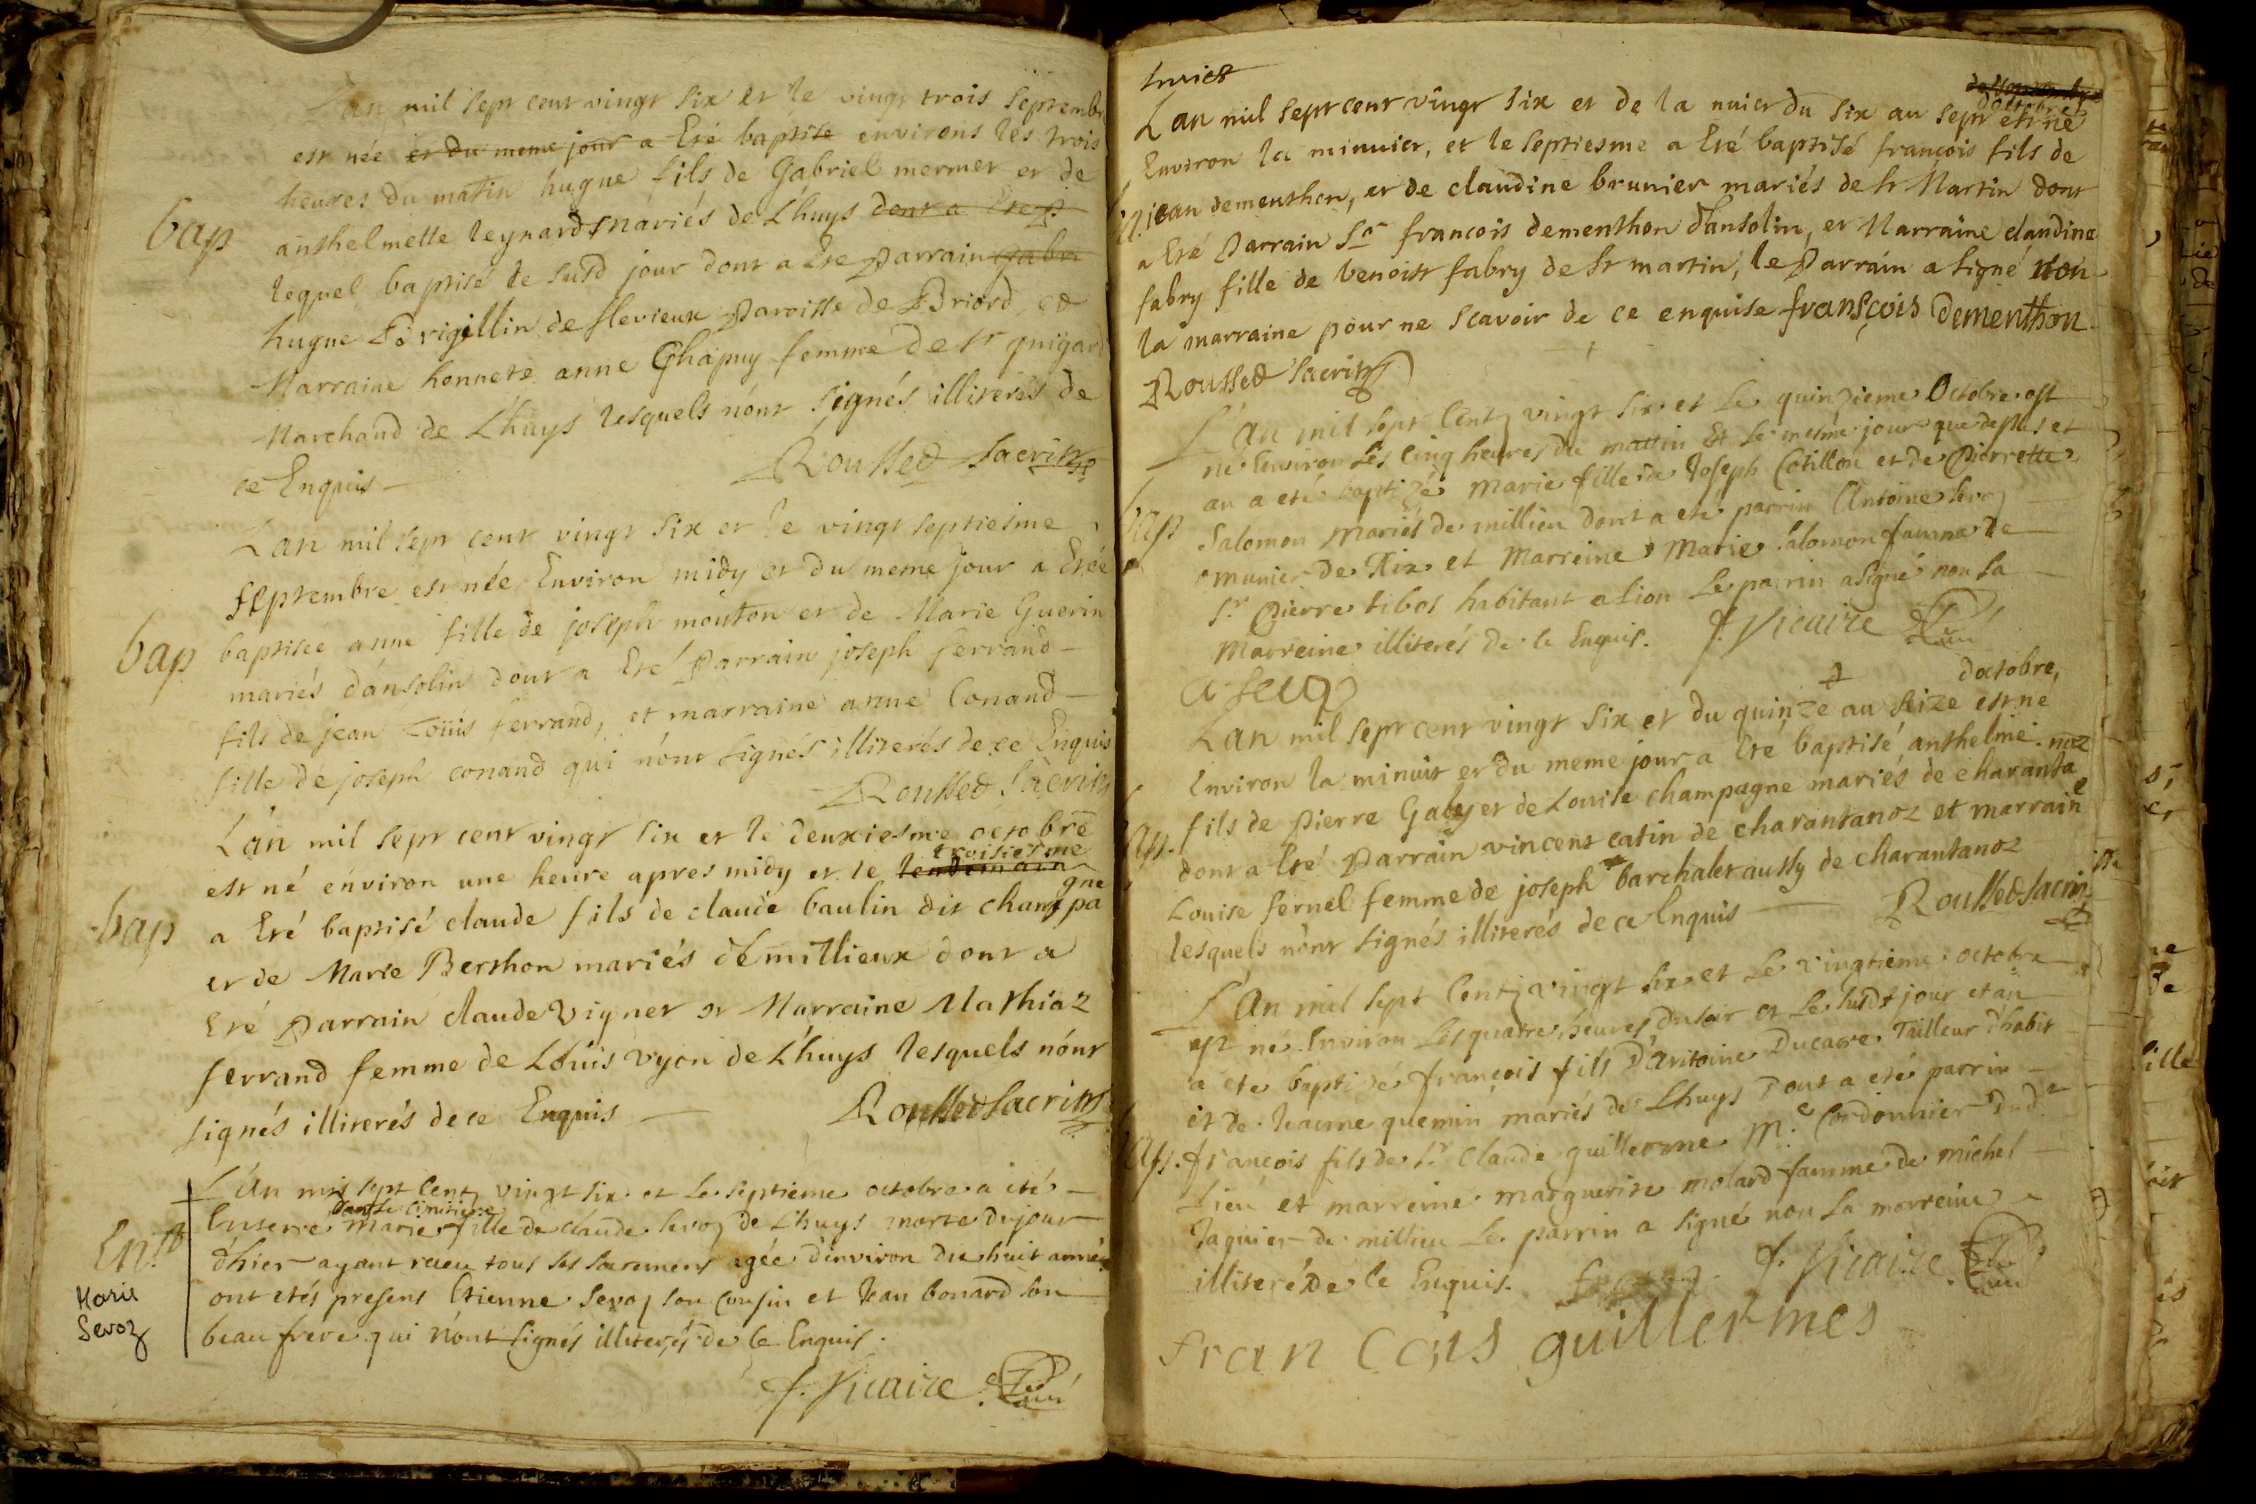 Lan mil sept cent vingt six et le vingt trois Septembr
est née et du meme jour a Eté baptise environs les trois
heures du matin hugue fils de Gabriel mermet et de
bap
anthelmette Reynard mariés de Lhuys dont a Ete p
lequel baptisé le susd jour dont a Ete parrain gabri
hugue de flevieux Paroisse de Briord, et
Marraine honnete anne Chapuy femme de sr guigard
Marchand de Lhuys lesquels n'ont signés illiterés de
ce Enquis
Rousset Sacrist
Lan mil sept cent vingt six et le vingt septiesme
septembre est née Environ midy et du meme jour a Etée
bap
baptisée anne fille de joseph mouton et de Marie Guerin
mariés d'ansolin dont a Eté parrain joseph ferrand
fils de jean Loüis ferrand, et marraine anne Conand
fille de joseph conand qui n'ont signés illiterés de ce Enquis
Rousset Sacrist
L'an mil sept cent vingt six et le deuxiesme octobre
troisiesme
est né environ une heure apres midy et le lendemain
gne
bap
a Eté baptisé claude fils de claude baulin dit champa
et de Marie Berthon mariés de millieux dont a
Eté parrain claude Vignet et Marraine Mathiaz
ferrand femme de Louis vyon de Lhuys lesquels n'ont
signés illiterés de ce Enquis
Rousset Sacrist
L'an mil sept Cent vingt six et le septieme octobre a été
dans le Cimitiere
Enterre marie fille de claude sevoz de Lhuys morte du jour
Ent
d'hier ayant receu tous les sacremens agée d'environ dix huit année
Marie
Sevoz
ont etés presens Etienne Sevoz son Cousin et Jean bonard son
beau frere qui n'ont signés illiterés de ce Enquis.
J. Vicaire
Curé
Lan mil sept cent vingt six et de la nuier du six au sept est né
d'octobre
Environ la minuier, et le septiesme a Eté baptisé françois fils de
jean dementhon, et de claudine brunier mariés de st Martin dont
a Eté parrain Sr francois dementhon d'ansolin, et Marraine claudine
fabry fille de benoist fabry de st martin, le parrain a signé non
la marraine pour ne scavoir de ce enquise franscois Dementhon
Rousset Sacrist
L'an mil sept Cent vingt six et le quinzieme Octobre est
né Environ les cinq heures du mattin Et le mesme jour que dessus et
an a eté baptizé marie fille de Joseph Cotillon et de Pierrette
bap
Salomon mariés de millieu dont a eté parrin Antoine sevoz
munier de Rix et Marreine Marie Salomon famme de
sr Pierre ribos habitant a lion le parrin a signé non la
Marreine illiterés de ce Enquis. J. Vicaire
Curé
A seuoz
d'octobre,
Lan mil sept cent vingt six et du quinze au seize est né
Environ la minuit et du meme jour a Eté baptisé anthelme
noz
fils de pierre Galey et de Louise champagne mariés de charanta
bap.
dont a Eté parrain vincent catin de charantanoz et marraine
Louise fernel femme de joseph barchalet aussy de charantanoz
lesquels n'ont signés illiterés de ce Enquis
Rousset Sacrist
L'an mil sept Cent vingt six et le vingtieme octobre
est né Environ les quatre heures du soir et le susdt jour et an
a eté baptizé françois fils D'antoine Ducarre Tailleur d'habit
et de Jeanne quemin mariés de Lhuys dont a eté parrin
bap.
françois fils de sr Claude guillerme Me Cordonnier dudt
Lieu et marreine marguerite molard famme de michel
Jaquier de millieu le parrin a signé non la marreine
illiteré de ce Enquis.
J. Vicaire
Curé
fran Cois guillermes